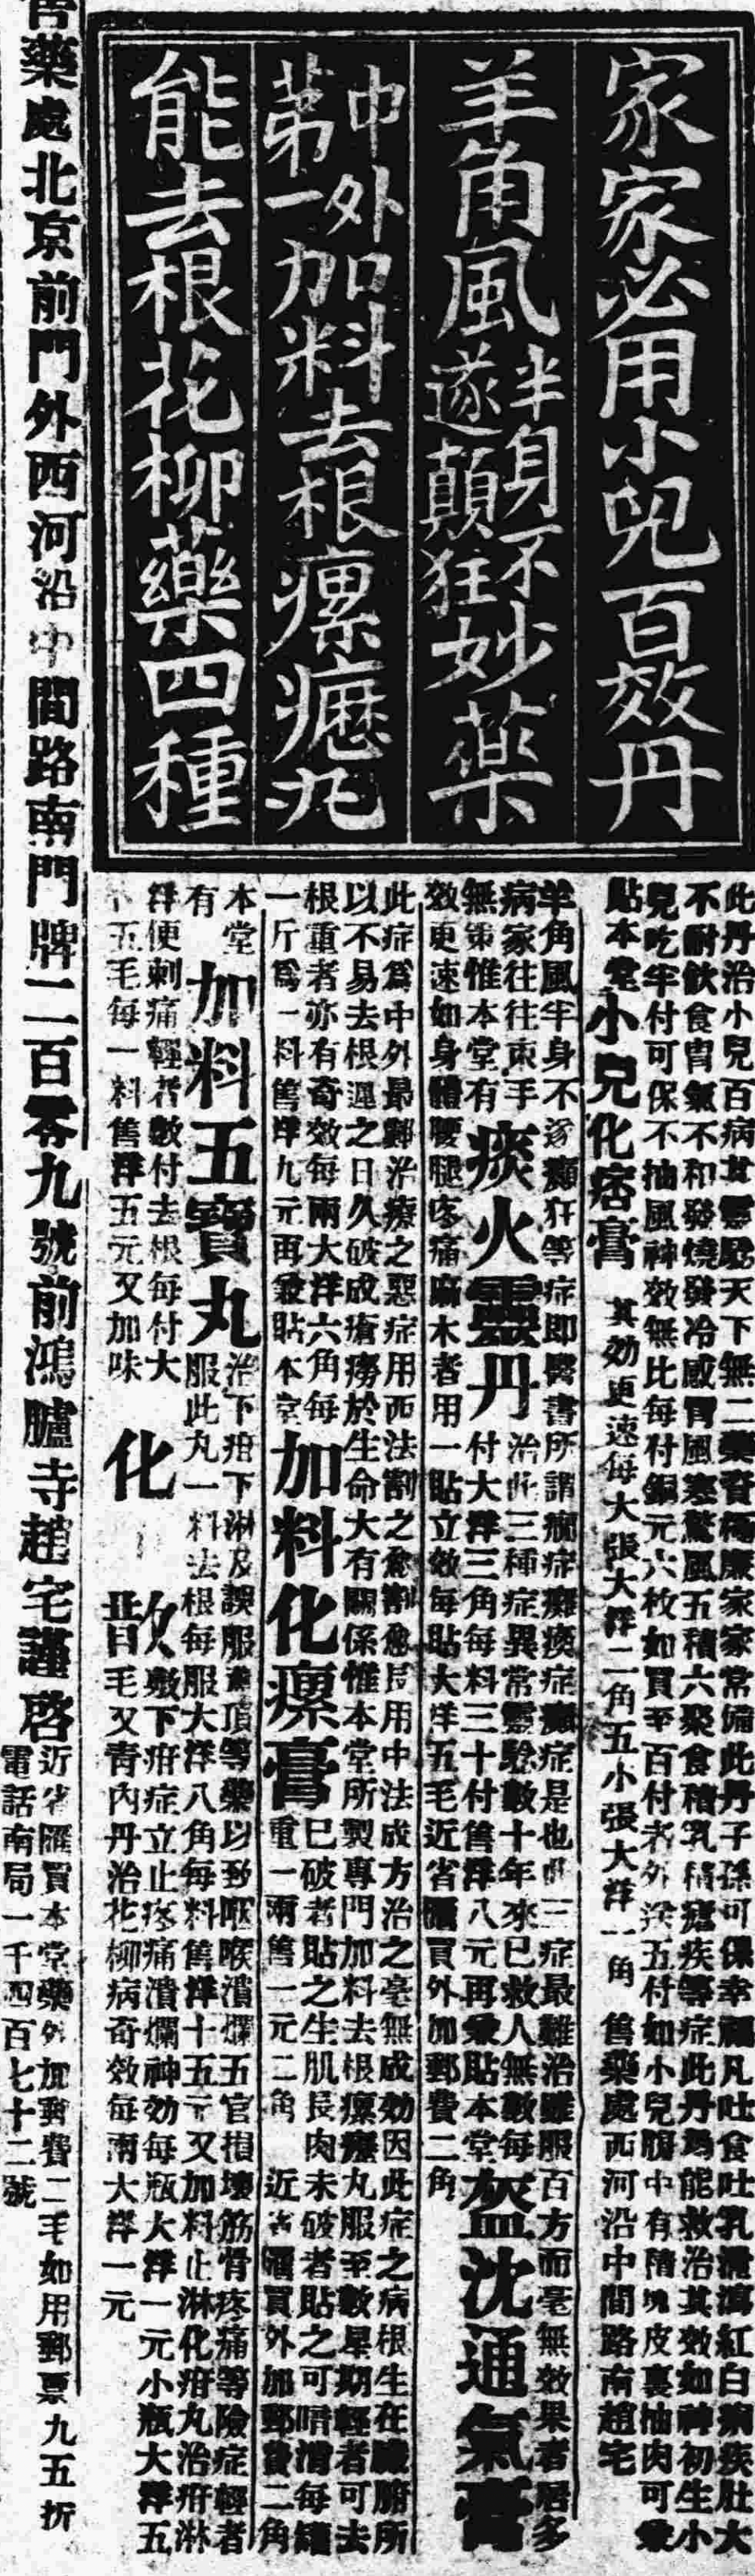 家家必用小兒百效丹
羊角風半身不遂顛狂妙藥
中外第一加料去根瘰癧丸
能去根花柳藥四種
此丹治小兒百病其靈驗天下無二藥費極廉家家常備此丹子孫可保幸福凡吐食吐乳瀉瀉紅白痢疾肚大
不耐飲食胃氣不和發燒發冷感冒風寒驚風五積六聚食積乳積瘧疾等症此丹均能救治其效如神初生小
兒吃半付可保不抽風神效無比每付銅元六枚如買至百付者外送五付如小兒腹中有積塊皮裏抽肉可兼
貼本堂小兒化痞膏 其効更速每大張大洋二角五小張大洋一角 售藥處西河沿中間路南趙宅
羊角風半身不遂癲狂等症即醫書所謂癇症癱瘓症癲症是也此三症最難治雖服百方而毫無效果者居多
病家往往束手
無策惟本堂有痰火靈丹治此三種症異常靈驗數十年來已救人無數每
付大洋三角每料三十付售洋八元再兼貼本堂盔沈通氣膏
效更速如身體腰腿疼痛麻木者用一貼立效每貼大洋五毛近省購買外加郵費二角
此症為中外最難治療之惡症用西法割之愈割愈長用中法成方治之毫無成効因此症之病根生在臟腑所
以不易去根遲之日久破成瘡癆於生命大有關係惟本堂所製專門加料去根瘰癧丸服至數星期輕者可去
根重者亦有奇效每兩大洋六角每
一斤爲一料售洋九元再兼貼本堂加料化瘰膏已破者貼之生肌長肉未破者貼之可暗消每罐
重一兩售一元二角 近省購買外加郵費二角
本堂
有加料五寶丸治下疳下淋及誤服靈頂等藥以致咽喉潰爛五官損壞筋骨疼痛等險症輕者
服此丸一料去根每服大洋八角每料售洋十五元又加料止淋化疳丸治疳淋
洋便刺痛輕者數付去根每付大
五毛每一料售洋五元又加味化 散敷下疳症立止疼痛潰爛神効每瓶大洋一元小瓶大洋五
毛又青內丹治花柳病奇效每兩大洋一元
售藥處北京前門外西河沿中間路南門牌二百零九號前鴻臚寺趙宅謹啓
近省匯買本堂藥外加郵費二毛如用郵票九五折
電話南局一千四百七十二號